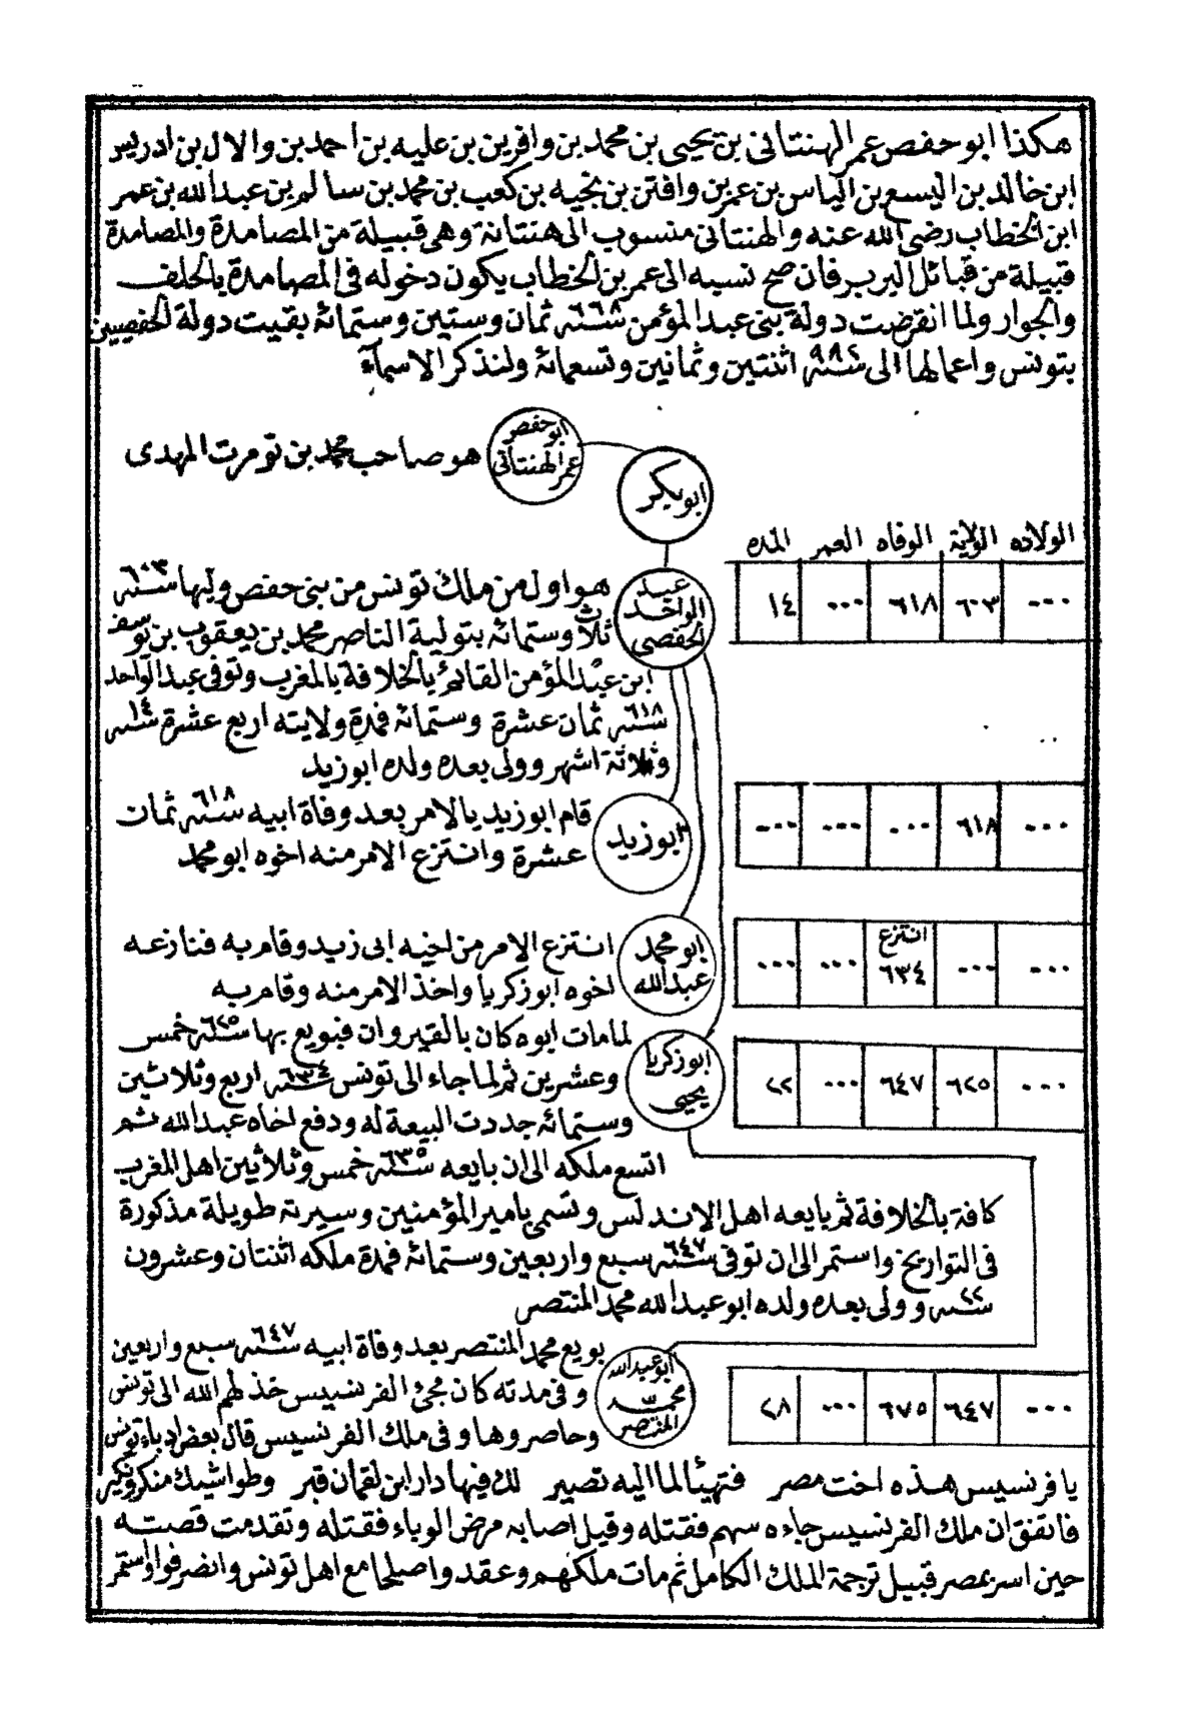 هكذا ابو حفص عمر الهنتاتى بن يحيى بن محمد بن وافرين بن عليه بن احمد بن والال بن ادريس
ابن خالد بن اليسع بن الياس بن عمر بن وافتن بن نجيه بن كعب بن محمد بن سالم بن عبد الله بن عمر
ابن الخطاب رضى الله عنه والهنتاتى منسوب الى هنتاتة وهى قبيلة من المصامدة والمصامدة
قبيلة من قبائل البربر فان صح نسبه الى عمر بن الخطاب يكون دخوله فى المصامدة بالحلف
والجوار ولما انقرضت دولة بنى عبد المؤمن سنة ٦٦٨ ثمان وستين وستمائة بقيت دولة الحفصيين
بتونس واعمالها الى سنة ٩٨٢ اثنتين وثمانين وتسعمائة ولنذكر الاسمآء
ابو حفص عمر الهنتاتى
هو صاحب محمد بن تومرت المهدى
ابو بكر
الولاده الولاية الوفاه العمر المده
... ٦٠٣ ٦١٨ ... ١٤
عبد الواحد الحفصى
هو اول من ملك تونس من بنى حفص وليها سنة ٦٠٣
ثلاث وستمائة بتولية الناصر محمد بن يعقوب بن يوسف
ابن عبد المؤمن القائم بالخلافة بالمغرب وتوفى عبد الواحد
سنة ٦١٨ ثمان عشرة وستمائة فمدة ولايته اربع عشرة سنة ١٤
وثلاثة اشهر وولى بعده ولده ابو زيد
... ٦١٨ ... ... ...
ابو زيد
قام ابو زيد بالامر بعد وفاة ابيه سنة ٦١٨ ثمان
عشرة وانتزع الامر منه اخوه ابو محمد
... ... انتزع ٦٣٤ ... ...
ابو محمد عبد الله
انتزع الامر من اخيه ابى زيد وقام به فنازعه
اخوه ابو زكريا واخذ الامر منه وقام به
... ٦٢٥ ٦٤٧ ... ٢٢
ابو زكريا يحيى
لما مات ابوه كان بالقيروان فبويع بها سنة ٦٢٥ خمس
وعشرين ثم لما جاء الى تونس سنة ٦٣٤ اربع وثلاثين
وستمائة جددت البيعة له ودفع اخاه عبد الله ثم
اتسع ملكه الى ان بايعه سنة ٦٣٥ خمس وثلاثين اهل المغرب
كافة بالخلافة ثم بايعه اهل الاندلس وتسمى بامير المؤمنين وسيرته طويلة مذكورة
فى التواريخ واستمر الى ان توفى سنة ٦٤٧ سبع واربعين وستمائة فمدة ملكه اثنتان وعشرون
سنة ٢٢ وولى بعده ولده ابو عبد الله محمد المنتصر
... ٦٤٧ ٦٧٥ ... ٢٨
ابو عبد الله محمد المنتصر
بويع محمد المنتصر بعد وفاة ابيه سنة ٦٤٧ سبع واربعين
وفى مدته كان مجئ الفرنسيس خذلهم الله الى تونس
وحاصروها وفى ملك الفرنسيس قال بعض ادباء تونس
يا فرنسيس هذه اخت مصر فتهيئا لما اليه تصير لك فيها دار ابن لقمان قبر وطواشيك منكر ونكير
فاتفق ان ملك الفرنسيس جاءه سهم فقتله وقيل اصابه مرض الوباء فقتله وتقدمت قصته
حين اسر بمصر قبيل ترجمة الملك الكامل ثم مات ملكهم وعقدوا صلحا مع اهل تونس وانصرفوا واستمر